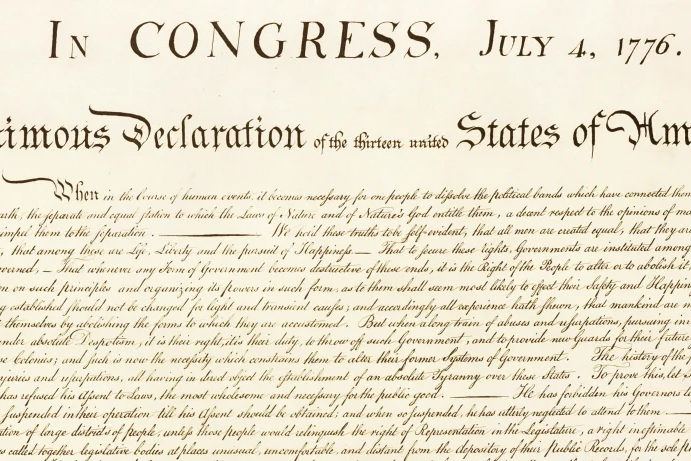 IN CONGRESS, JULY 4, 1776.
imous Declaration of the thirteen united States of Am
When in the Course of human events, it becomes necessary for one people to dissolve the political bands which have connected them
arth, the separate and equal station to which the Laws of Nature and of Nature's God entitle them, a decent respect to the opinions of ma
impel them to the separation. ——— We hold these truths to be self-evident, that all men are created equal, that they are
, that among these are Life, Liberty and the pursuit of Happiness.— That to secure these rights, Governments are instituted among
verned, — That whenever any Form of Government becomes destructive of these ends, it is the Right of the People to alter or to abolish it,
on on such principles and organizing its powers in such form, as to them shall seem most likely to effect their Safety and Happin
g established should not be changed for light and transient causes; and accordingly all experience hath shewn, that mankind are m
themselves by abolishing the forms to which they are accustomed. But when a long train of abuses and usurpations, pursuing in
under absolute Despotism, it is their right, it is their duty, to throw off such Government, and to provide new Guards for their future
se Colonies; and such is now the necessity which constrains them to alter their former Systems of Government. The history of the p
njuries and usurpations, all having in direct object the establishment of an absolute Tyranny over these States. To prove this, let
has refused his Assent to Laws, the most wholesome and necessary for the public good. ——— He has forbidden his Governors to
suspended in their operation till his Assent should be obtained; and when so suspended, he has utterly neglected to attend to them. ———
tion of large districts of people, unless those people would relinquish the right of Representation in the Legislature, a right inestimable
s called together legislative bodies at places unusual, uncomfortable, and distant from the depository of their Public Records, for the sole p